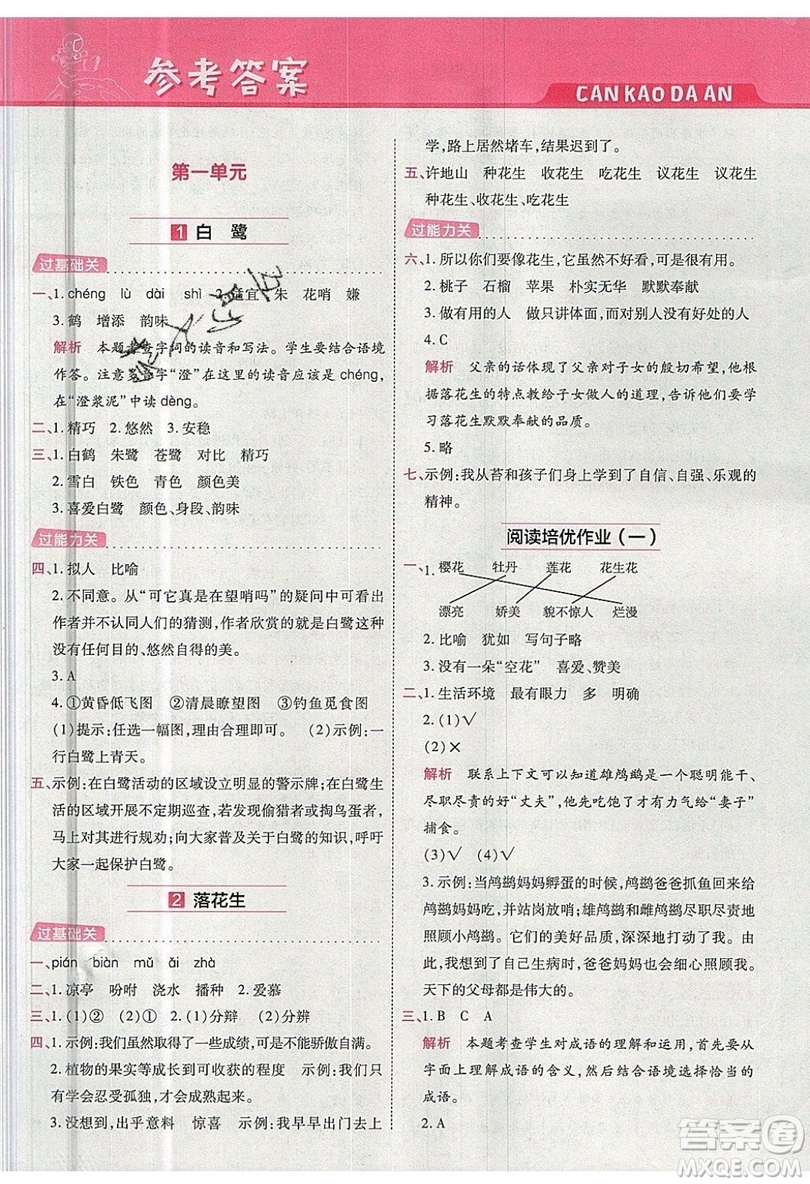 参考答案
CAN KAO DA AN
第一单元
1 白 鹭
过基础关
一、1. chéng lù dài shì 2. 适宜 朱 花哨 嫌
3. 鹤 增添 韵味
解析 本题考查字词的读音和写法。学生要结合语境
作答。注意多音字“澄”在这里的读音应该是 chéng,
在“澄浆泥”中读 dèng。
二、1. 精巧 2. 悠然 3. 安稳
三、1. 白鹤 朱鹭 苍鹭 对比 精巧
2. 雪白 铁色 青色 颜色美
3. 喜爱白鹭 颜色、身段、韵味
过能力关
四、1. 拟人 比喻
2. 不同意。从“可它真是在望哨吗”的疑问中可以看出
作者并不认同人们的猜测,作者欣赏的是白鹭这种
没有任何目的、悠然自得的美。
3. A
4. ①黄昏低飞图 ②清晨瞭望图 ③钓鱼觅食图
(1)提示:任选一幅图,理由合理即可。 (2)示例:一
行白鹭上青天。
五、示例:在白鹭活动的区域设立明显的警示牌;在白鹭生
活的区域开展不定期巡查,发现偷猎者或掏鸟蛋者,
马上对其进行规劝;向大家普及关于白鹭的知识,呼吁
大家一起保护白鹭。
2 落花生
过基础关
一、pián biàn mǔ ǎi zhà
二、1. 凉亭 吩咐 浇水 播种 2. 爱慕
三、1. (1)② (2)① 2. (1)分辩 (2)分辨
四、1. 示例:我们虽然取得了一些成绩,可是不能骄傲自满。
2. 植物的果实等成长到可收获的程度 示例:我们要
学会忍受孤独,才可能成就最好的自己。
3. 没想到,出乎意料 惊喜 示例:我早早出门去上
学,路上居然堵车,结果迟到了。
五、许地山 种花生 收花生 吃花生 议花生 议花生
种花生、收花生、吃花生
过能力关
六、1. 所以你们要像花生,它虽然不好看,可是很有用。
2. 桃子 石榴 苹果 朴实无华 默默奉献
3. 做有用的人 做只讲体面,而对别人没有好处的人
4. C
解析 父亲的话体现了父亲对子女的殷切希望,他根
据落花生的特点教给子女做人的道理,告诉他们要
学习落花生默默奉献的品质。
5. 略
七、示例:我从苔和孩子们身上学到了自信、自强、乐观的
精神。
阅读培优作业(一)
一、1. 樱花 牡丹 莲花 花生花
漂亮 娇美 貌不惊人 烂漫
2. 比喻 犹如 写句子略
3. 没有一朵“空花” 喜爱、赞美
二、1. 生活环境 最有眼力 多 明确
2. (1)√
(2)×
解析 联系上下文可以知道雄鸬鹚是一个聪明能干、
尽职尽责的好“丈夫”,他会尽力而为地给“妻子”
捕食。
(3)√ (4)√
3. 示例:当鸬鹚妈妈孵蛋的时候,鸬鹚爸爸抓鱼回来
给鸬鹚妈妈吃,并站岗放哨;雄鸬鹚又当爸爸又当妈
妈,精心养育和保护雏鸟,尽职尽责,深深地打动了
我。我不禁想起了自己的爸爸妈妈对我的关爱……
天下的父母都是伟大的。
三、1. B C A
解析 本题考查学生对成语的理解和运用,首先要从
字面上理解成语的含义,然后结合语境选择恰当的
成语。
2. A
答案圈
MXQE.COM